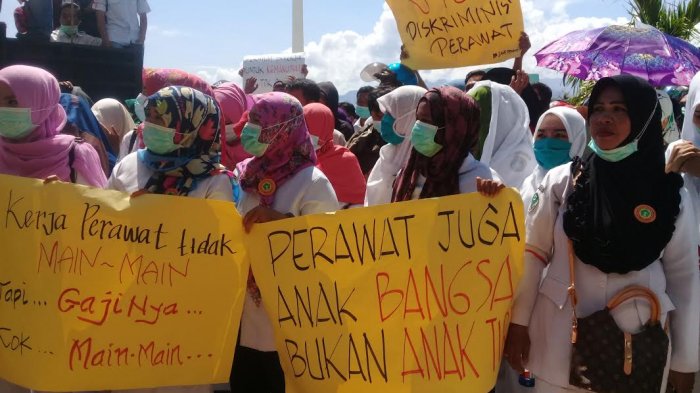 DISKRIMINASI
PERAWAT
Kerja Perawat tidak
MAIN~MAIN
Tapi... Gajinya...
Kok... Main-Main...
PERAWAT JUGA
ANAK BANGSA
BUKAN ANAK